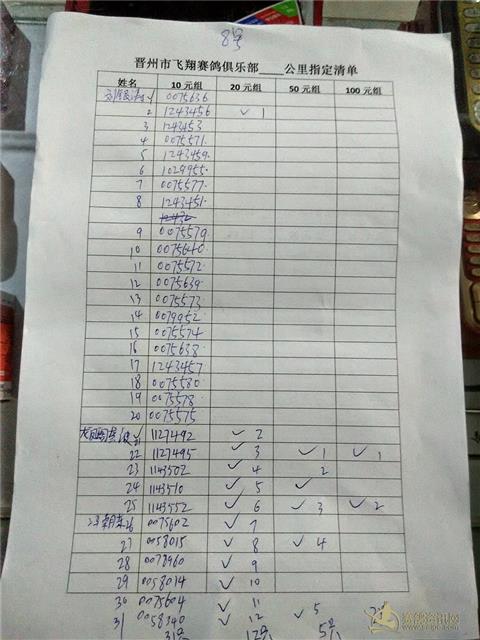 8号
晋州市飞翔赛鸽俱乐部____公里指定清单
姓名 10 元组 20 元组 50 元组 100 元组
0075636
2 1243456 ✓ 1
3 1243453
4 0075571
5 1243459
6 1029955
7 0075577
8 1243451
9 0075579
10 0075640
11 0075572
12 0075639
13 0075573
14 0079952
15 0075574
16 0075638
17 1243457
18 0075580
19 0075578
20 0075575
1127492 ✓ 2
22 1127495 ✓ 3 ✓ 1 ✓ 1
23 1143502 ✓ 4 2
24 1143510 ✓ 5 ✓
25 1143552 ✓ 6 ✓ 3 ✓ 2
26 0075602 ✓ 7
27 0058015 ✓ 8 ✓ 4
28 0078960 ✓ 9
29 0058014 ✓ 10
30 0075604 ✓ 11 ✓ 5
31 0058340 ✓ 12